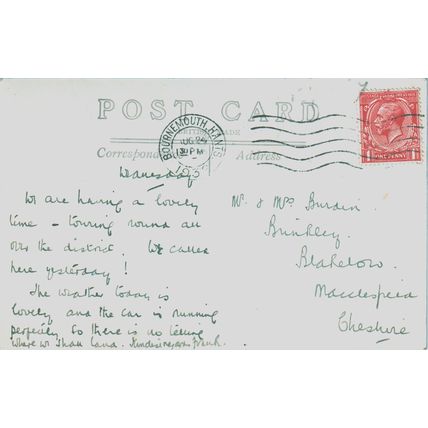 POST CARD
BRITISH MADE
BOURNEMOUTH, HANTS.
AUG 24
PM
POSTAGE
ONE PENNY
Correspondence
Address
Wednesday
We are having a lovely
time - touring round all
over the district. We called
here yesterday!
The weather today is
lovely and the car is running
perfectly so there is no telling
where we shall land. Kindest regards Frank.
Mr. & Mrs Burdin.
Brinkley.
Blakelow.
Macclesfield
Cheshire.